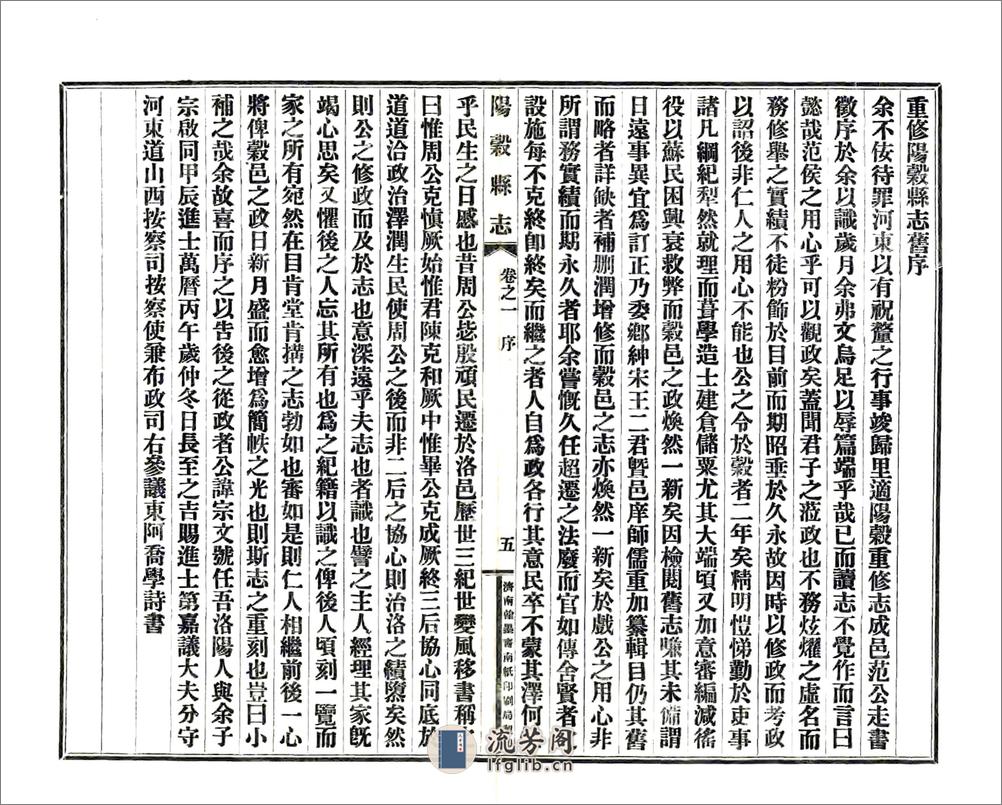 重修陽穀縣志舊序
余不佞待罪河東以有祝釐之行事竣歸里適陽穀重修志成邑范公走書
徵序於余以識歲月余弗文烏足以辱篇端乎哉已而讀志不覺作而言曰
懿哉范侯之用心乎可以觀政矣蓋聞君子之蒞政也不務炫燿之虛名而
務修舉之實績不徒粉飾於目前而期昭垂於久永故因時以修政而考政
以詔後非仁人之用心不能也公之令於穀者二年矣精明愷悌勤於吏事
諸凡綱紀犁然就理而葺學造士建倉儲粟尤其大端頃又加意審編減徭
役以蘇民困興衰救弊而穀邑之政煥然一新矣因檢閱舊志嗛其未備謂
日遠事異宜爲訂正乃委鄉紳宋王二君曁邑庠師儒重加纂輯目仍其舊
而略者詳缺者補刪潤增修而穀邑之志亦煥然一新矣於戲公之用心非
所謂務實績而期永久者耶余嘗慨久任超遷之法廢而官如傳舍賢者
設施每不克終卽終矣而繼之者人自爲政各行其意民卒不蒙其澤何
陽穀縣志
卷之一 序
五
濟南翰墨齋南紙印刷局
乎民生之日慼也昔周公毖殷頑民遷於洛邑歷世三紀世變風移書稱
曰惟周公克愼厥始惟君陳克和厥中惟畢公克成厥終三后協心同底於
道道洽政治澤潤生民使周公之後而非二后之協心則治洛之績墮矣然
則公之修政而及於志也意深遠乎夫志也者識也譬之主人經理其家旣
竭心思矣又懼後之人忘其所有也爲之紀籍以識之俾後人頃刻一覽而
家之所有宛然在目肯堂肯搆之志勃如也審如是則仁人相繼前後一心
將俾穀邑之政日新月盛而愈增爲簡帙之光也則斯志之重刻也豈曰小
補之哉余故喜而序之以告後之從政者公諱宗文號任吾洛陽人與余子
宗啟同甲辰進士萬曆丙午歲仲冬日長至之吉賜進士第嘉議大夫分守
河東道山西按察司按察使兼布政司右參議東阿喬學詩書
流芳閣
lfglib.cn